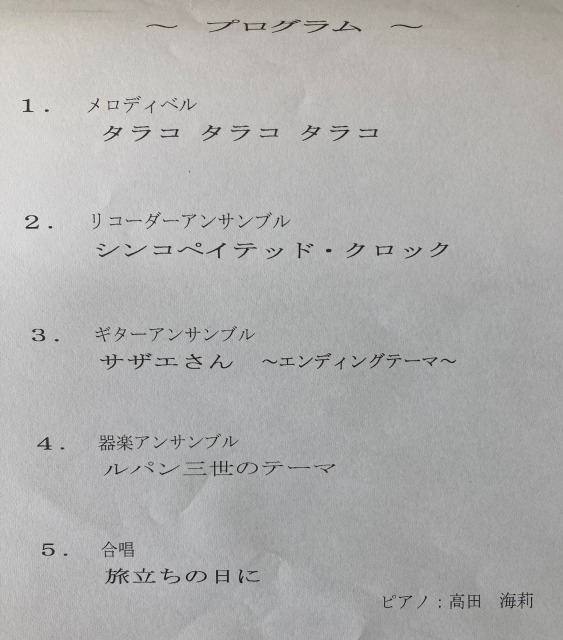 ～ プログラム ～
1. メロディベル
タラコ タラコ タラコ
2. リコーダーアンサンブル
シンコペイテッド・クロック
3. ギターアンサンブル
サザエさん ～エンディングテーマ～
4. 器楽アンサンブル
ルパン三世のテーマ
5. 合唱
旅立ちの日に
ピアノ：高田 海莉